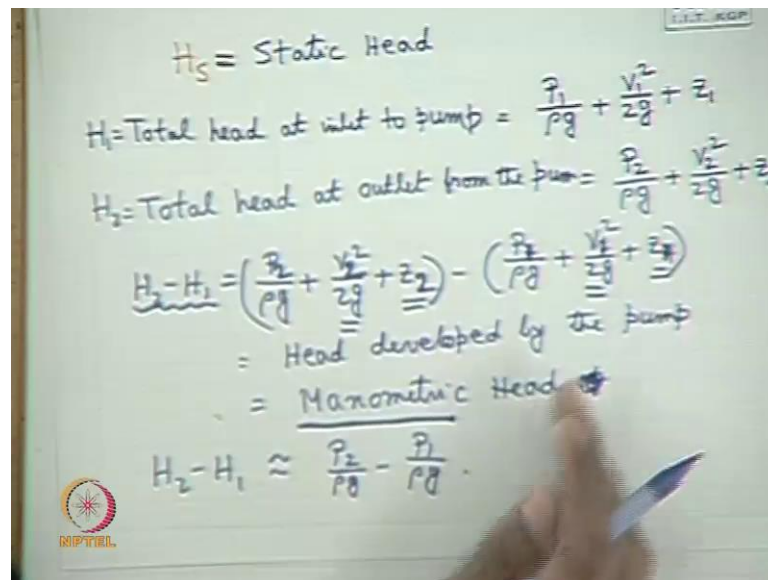 I.I.T. KGP
H_S = Static Head
H₁ = Total head at inlet to pump = P₁/ρg + V₁²/2g + z₁
H₂ = Total head at outlet from the pum = P₂/ρg + V₂²/2g + z
H₂-H₁ = (P₂/ρg + V₂²/2g + z₂) - (P₁/ρg + V₁²/2g + z₁)
= Head developed by the pump
= Manometric Head
H₂-H₁ ≈ P₂/ρg - P₁/ρg .
NPTEL